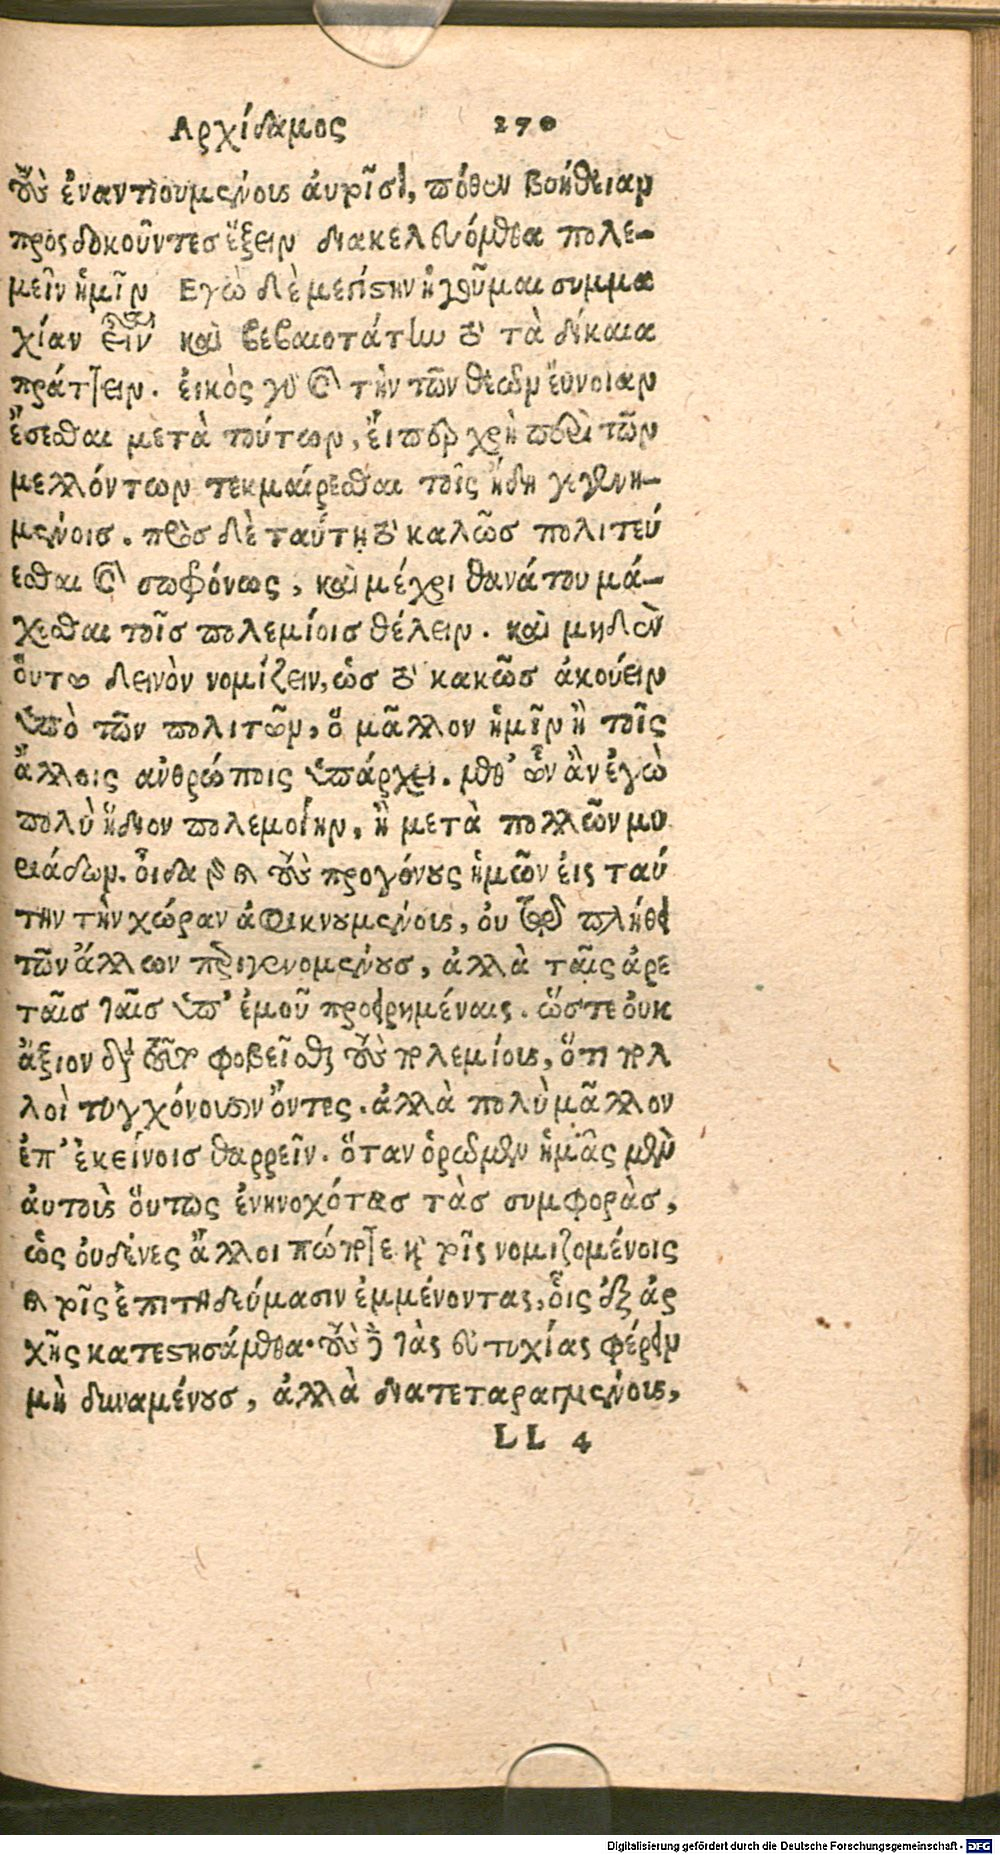 Αρχίδαμος 270
τοὺς ἐναντιουμένους ἀυτοῖς, πόθεν βοήθειαν
προςδοκοῦντεσ ἕξειν διακελευόμεθα πολε-
μεῖν ἡμῖν Εγὼ δὲ μεγίστην ἡγοῦμαι συμμα
χίαν εἶναι καὶ βεβαιοτάτην τὸ τὰ δίκαια
πράττειν. ἐικὸς γὸ καὶ τὴν τῶν θεῶν ἔυνοιαν
ἔσεσθαι μετὰ τούτων, ἔιπερ χρὴ περὶ τῶν
μελλόντων τεκμαίρεσθαι τοῖς ἤδη γεγενη-
μένοις. πρὸς δὲ ταύτῃ τὸ καλῶσ πολιτεύ
εσθαι καὶ σωφρόνως, καὶ μέχρι θανάτου μά-
χεσθαι τοῖσ πολεμίοισ θέλειν. καὶ μηδὲν
ὅυτω δεινὸν νομίζειν, ὡσ τὸ κακῶσ ἀκούειν
ὑπὸ τῶν πολιτῶν, ὅ μᾶλλον ἡμῖν ἢ τοῖς
ἄλλοις ἀνθρώποις ὑπάρχει. μεθ' ὧν ἂν ἐγὼ
πολὺ ἥδιον πολεμοίην, ἢ μετὰ πολλῶν μυ
ριάδων. ὀῖδα γὸ καὶ τοὺς προγόνους ἡμῶν ἐις ταύ
την τὴν χώραν ἀφικνουμένους, ὀυ τῷ πλήθει
τῶν ἄλλων περιγενομένουσ, ἀλλὰ ταῖς ἀρε
ταῖσ ταῖσ ὑπ' ἐμοῦ προειρημέναις. ὥστε ὀυκ
ἄξιον διὰ τοῦτο φοβεῖσθαι τοὺς πολεμίους, ὅτι πολ
λοὶ τυγχάνουσιν ὄντες. ἀλλὰ πολὺ μᾶλλον
ἐπ' ἐκείνοισ θαρρεῖν. ὅταν ὁρῶμεν ἡμᾶς μὲν
ἀυτοὺς ὅυτως ἐνηνοχότασ τὰσ συμφορὰσ,
ὡς ὀυδένες ἄλλοι πώποτε καὶ τοῖς νομιζομένοις
καὶ τοῖς ἐπιτηδεύμασιν ἐμμένοντας, ὁῖς ἐξ ἀρ
χῆς κατεστησάμεθα. τοὺς δὲ τὰς ἐυτυχίας φέρειν
μὴ δυναμένουσ, ἀλλὰ διατεταραγμένους,
LL 4
Digitalisierung gefördert durch die Deutsche Forschungsgemeinschaft - DFG